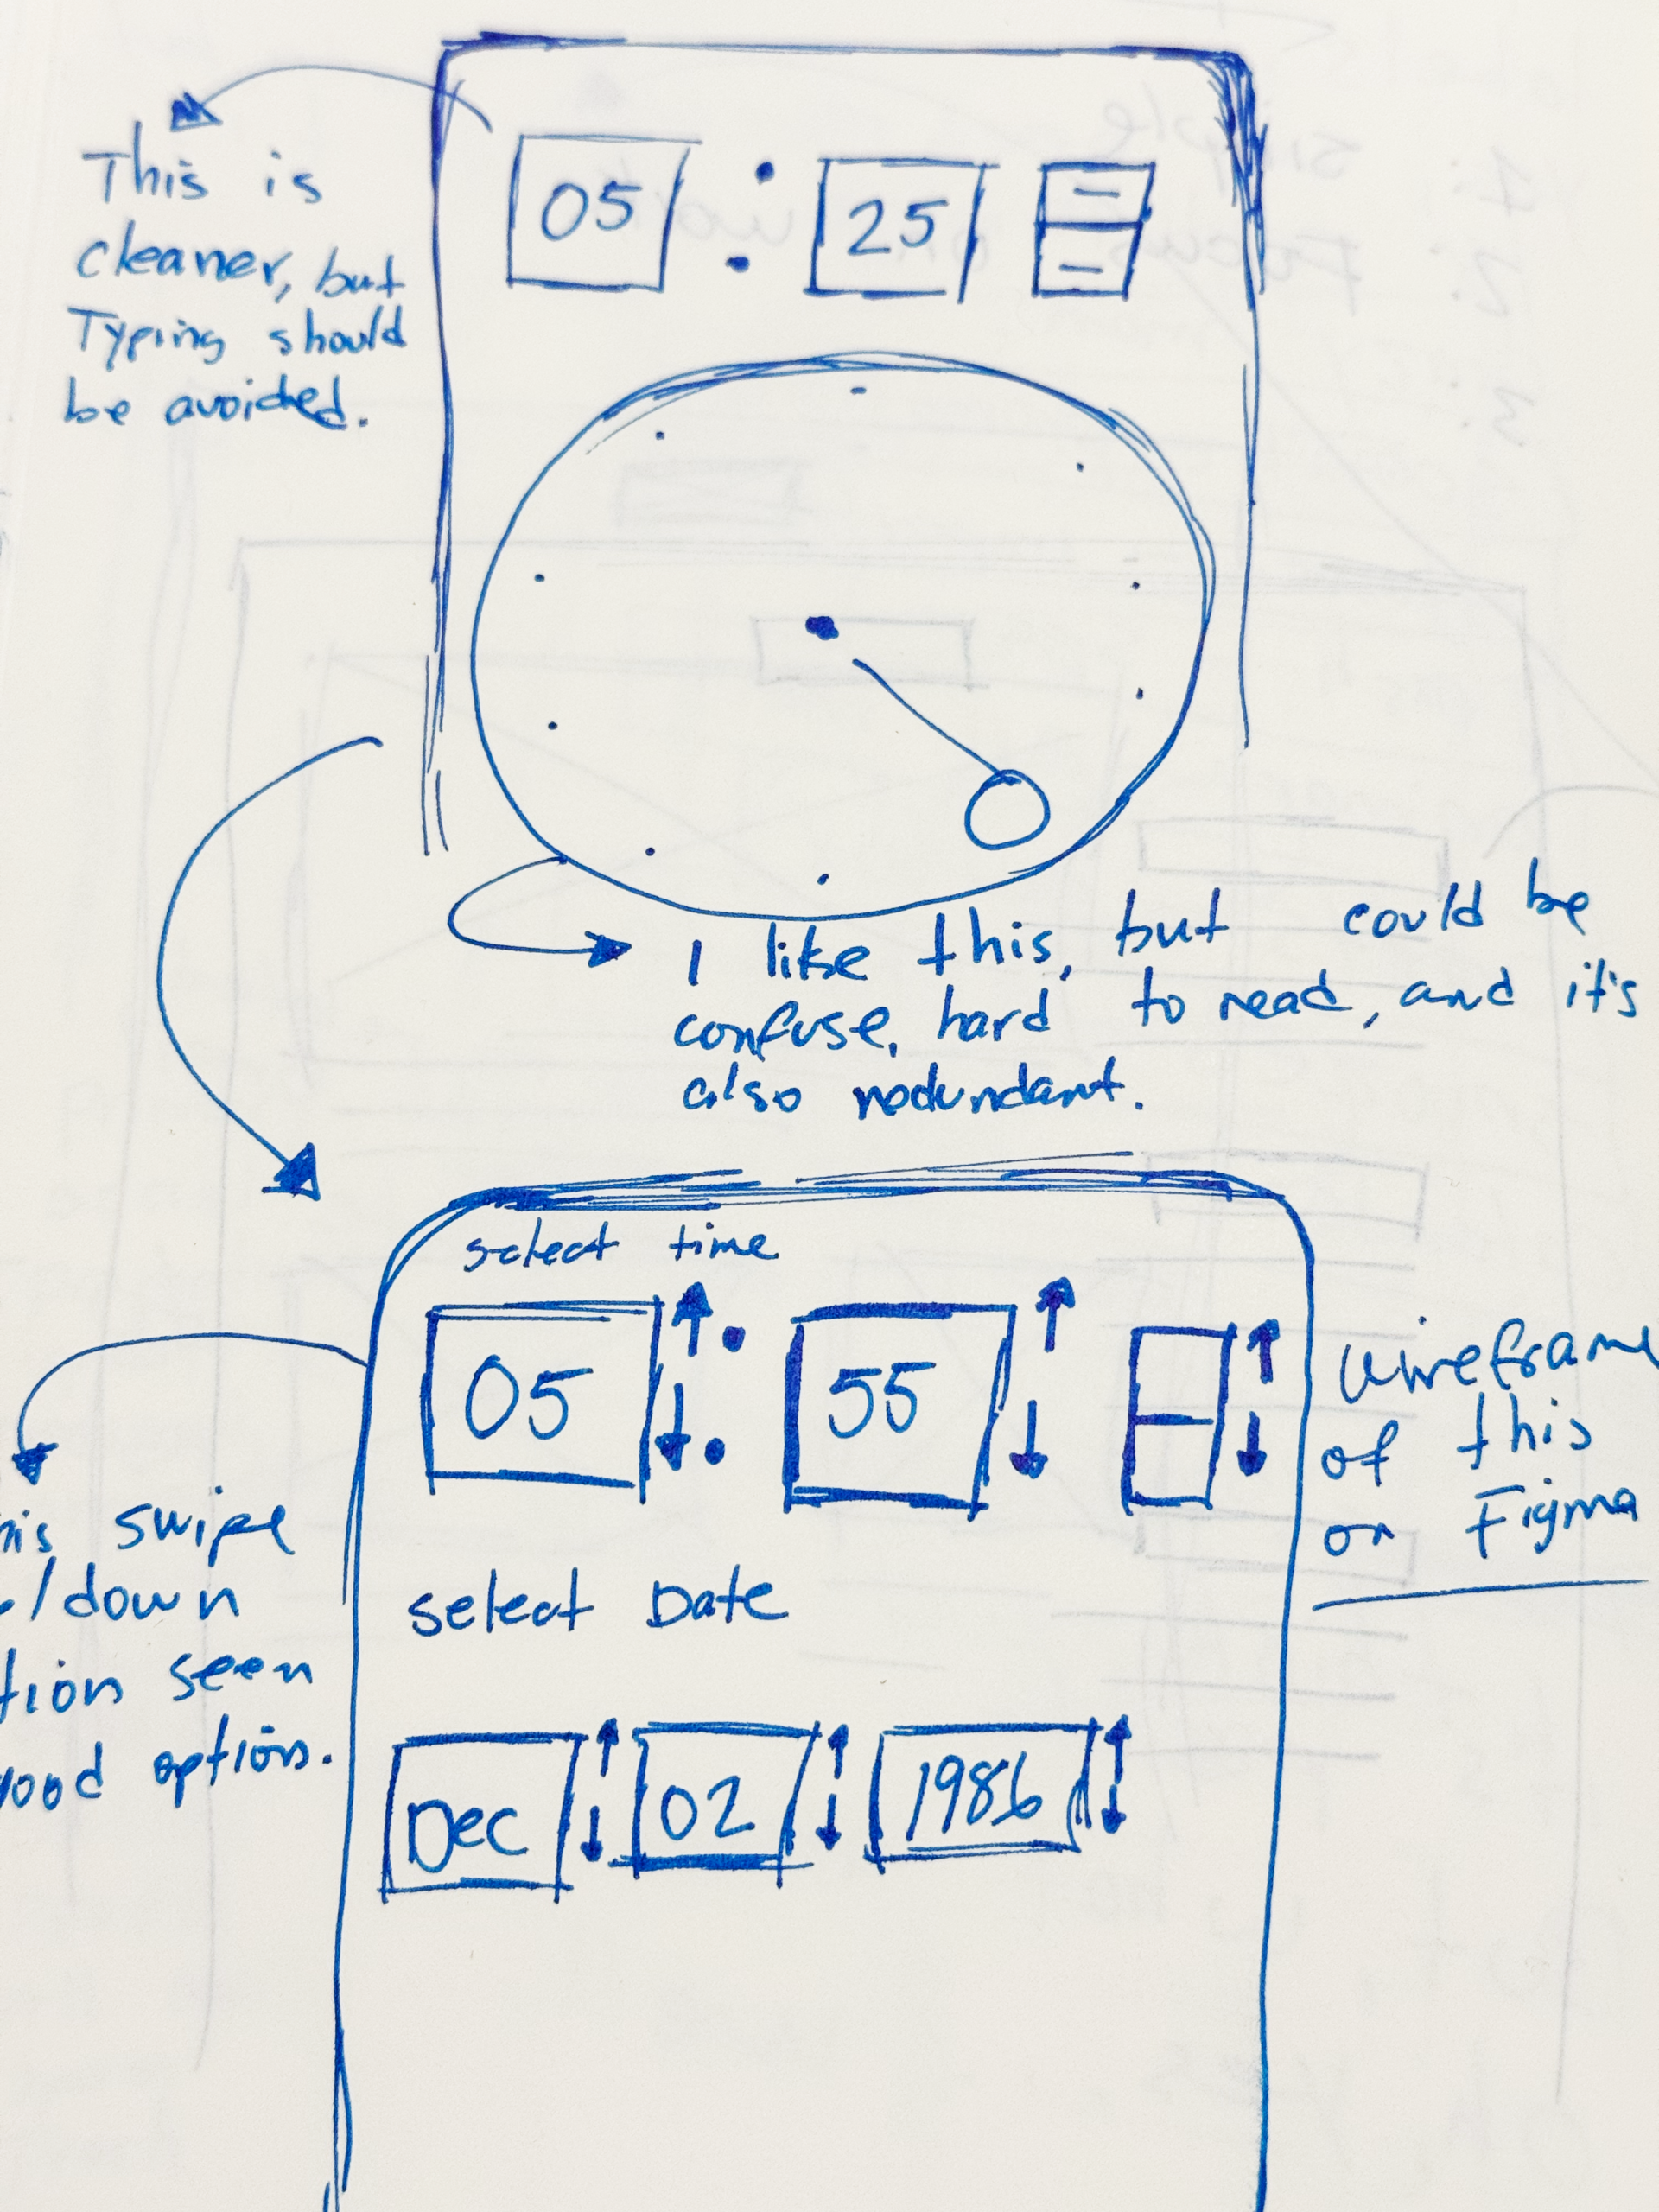 This is
cleaner, but
Typing should
be avoided.
05 : 25
I like this, but could be
confuse, hard to read, and it's
also redundant.
select time
05 : 55
wireframe
of this
on Figma
swipe
/down
seen
good option.
select Date
Dec 02 1986
simple
Focus on
1:
2:
3: